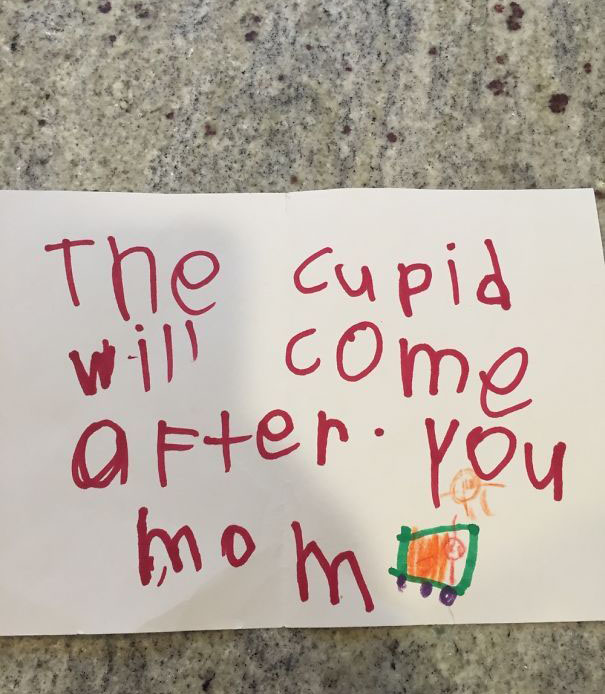 The cupid
will come
after. you
mom